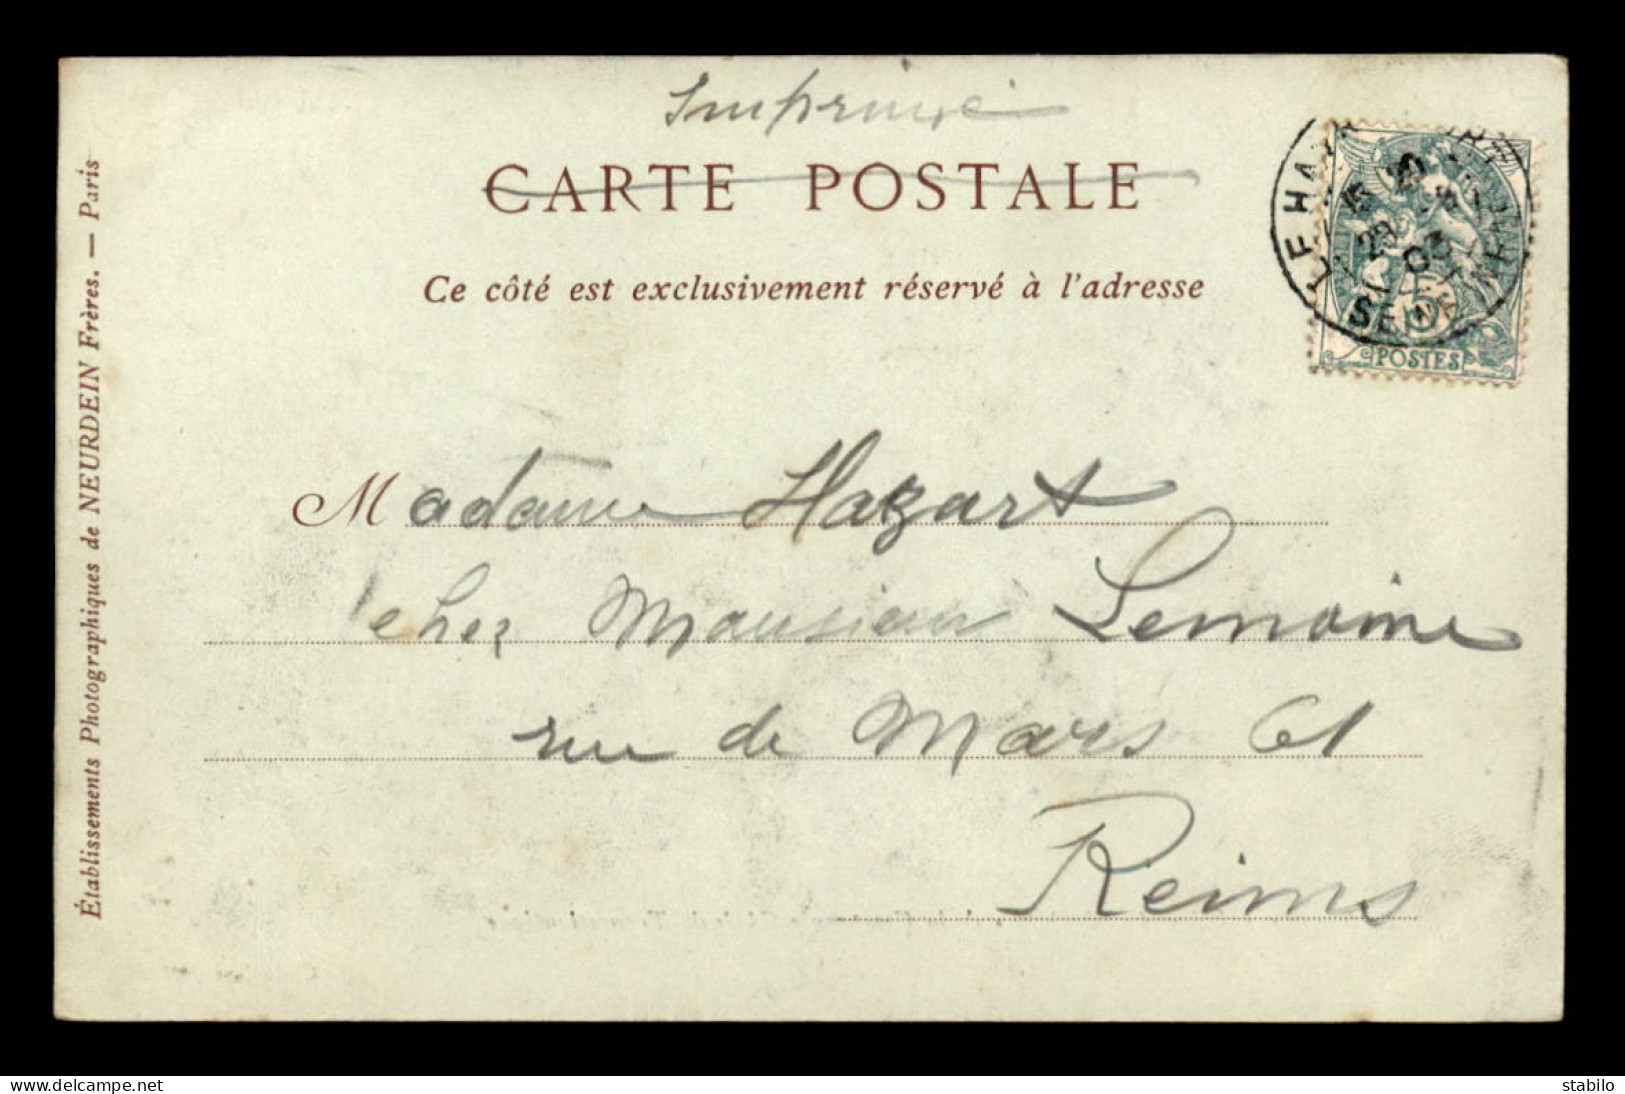 Imprimé
CARTE POSTALE
Ce côté est exclusivement réservé à l'adresse
Établissements Photographiques de NEURDEIN Frères. — Paris
LE HA
29
03
SEINE
5
POSTES
Madame Hazart
chez Monsieur Lemoine
rue de Mars 61
Reims
www.delcampe.net
stabilo